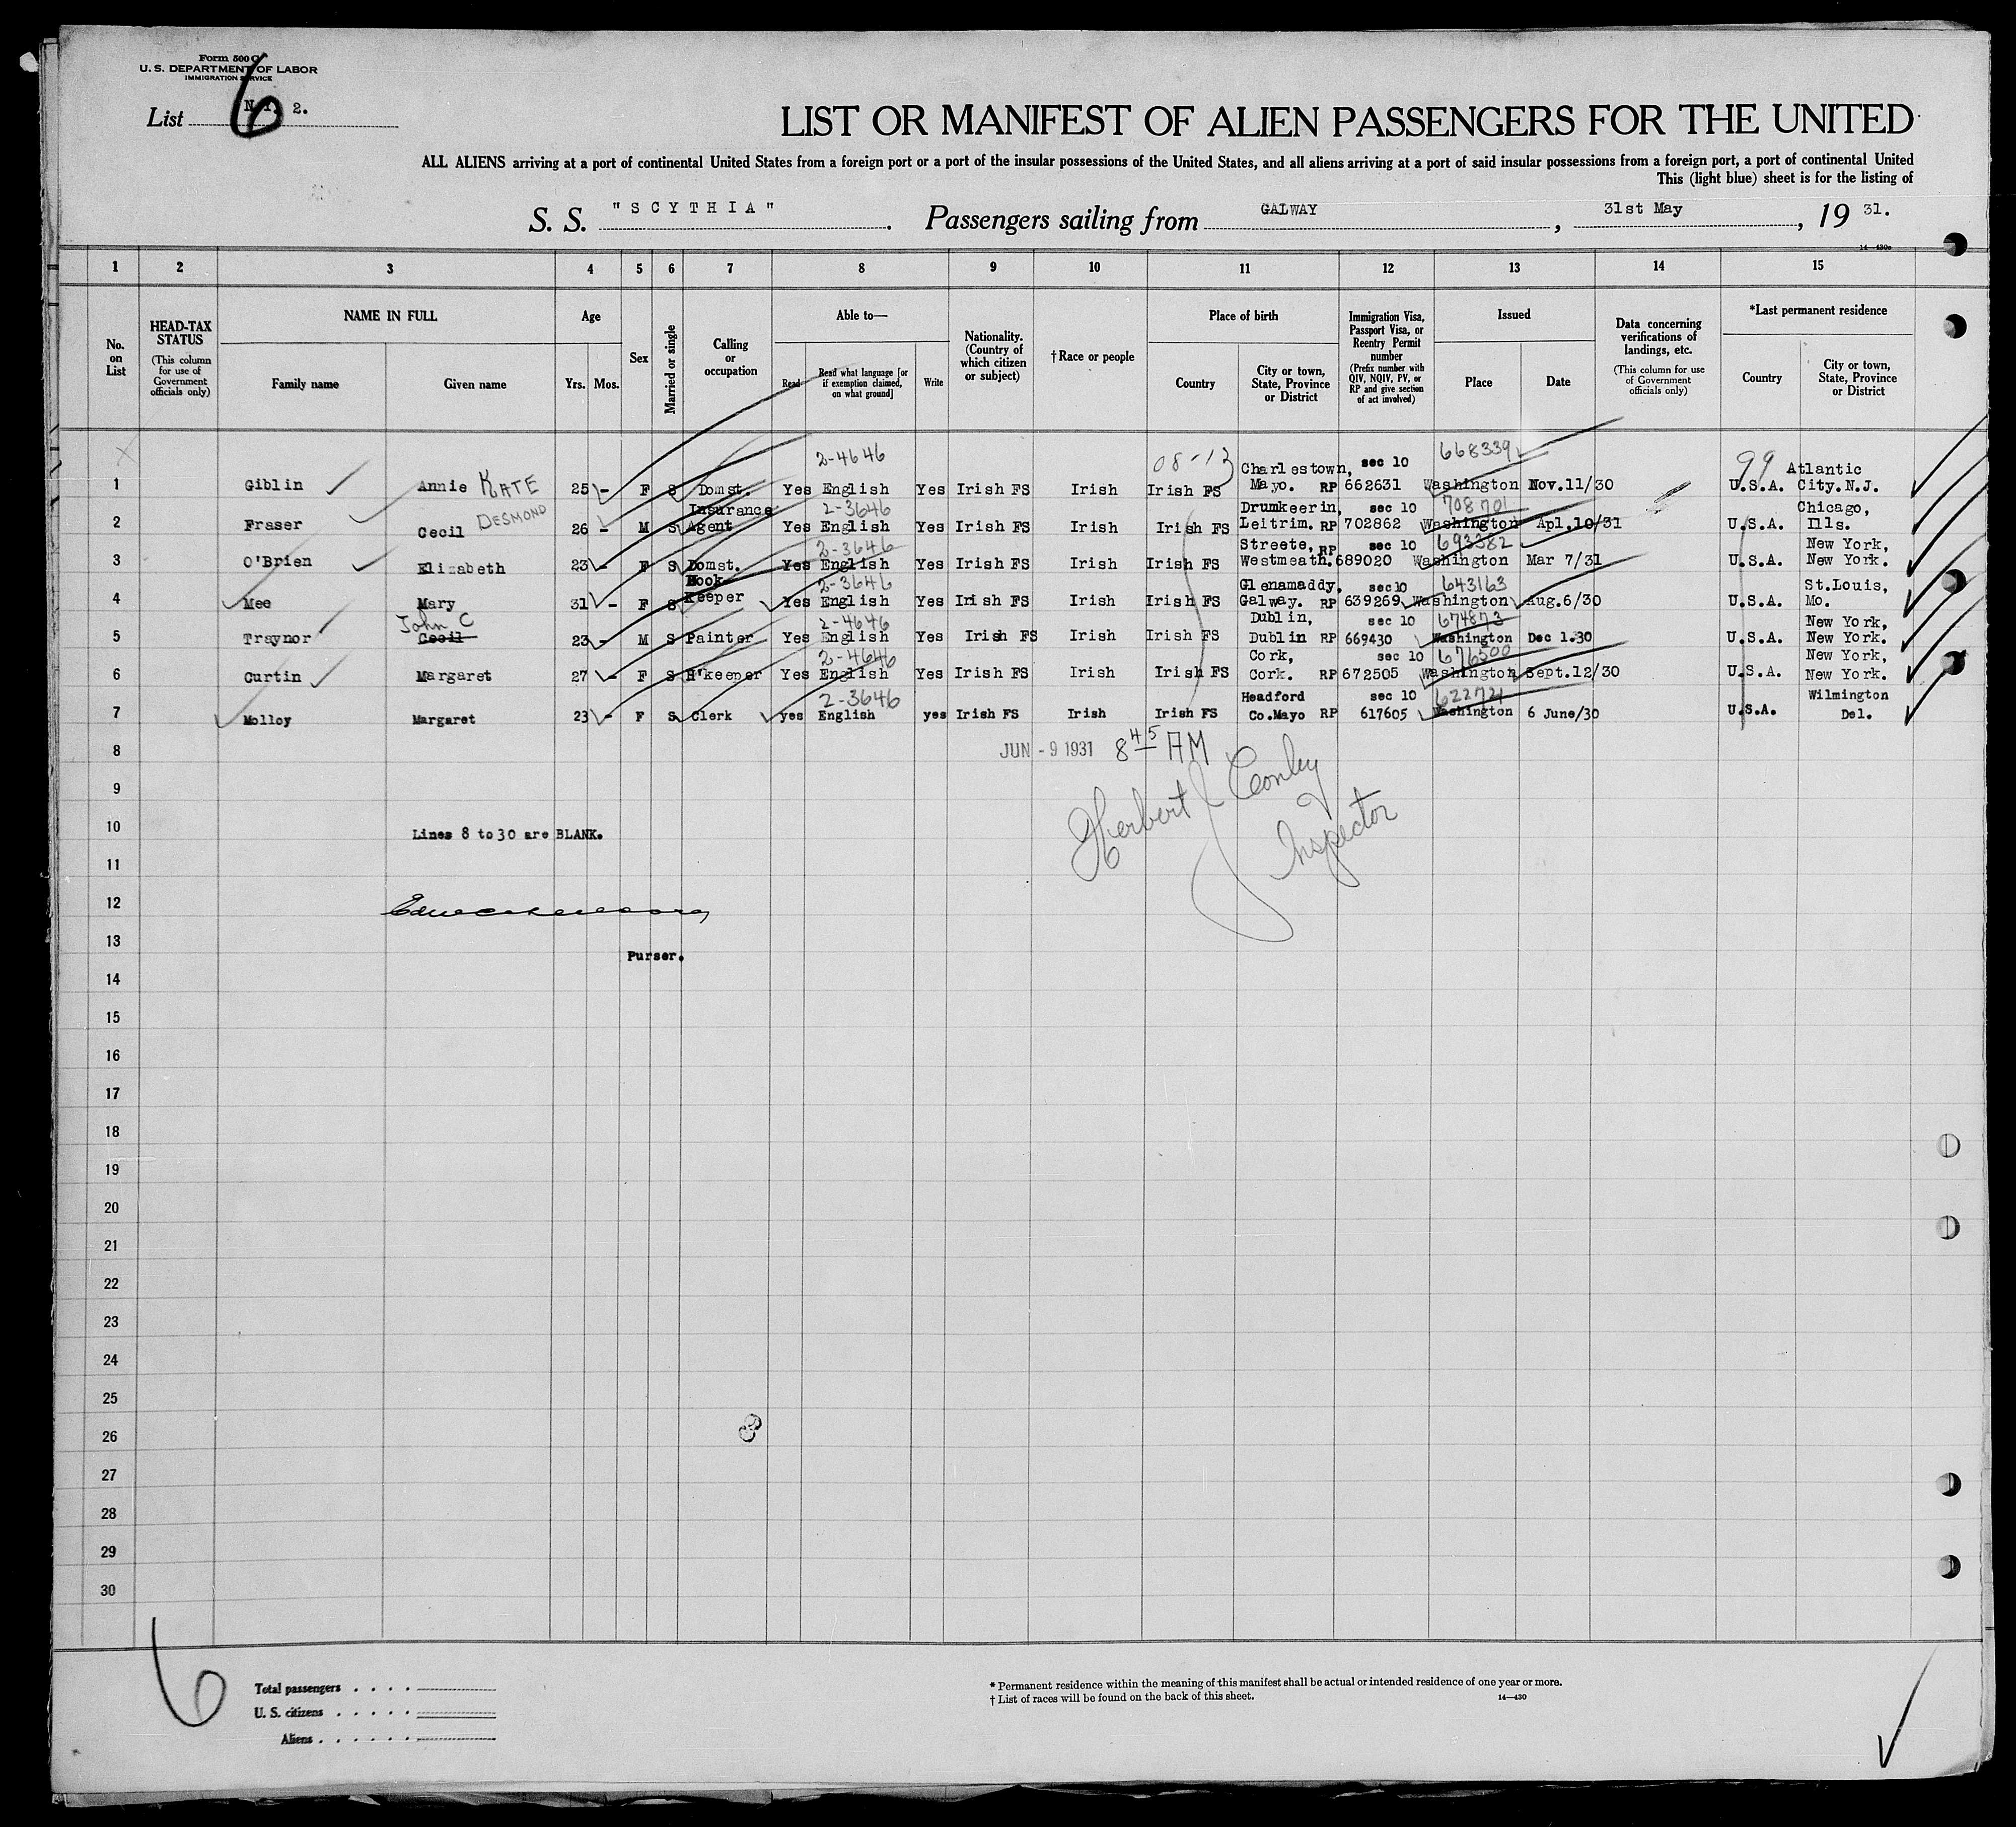 Form 500 C
U. S. DEPARTMENT OF LABOR
IMMIGRATION SERVICE
List 2.
6
LIST OR MANIFEST OF ALIEN PASSENGERS FOR THE UNITED
ALL ALIENS arriving at a port of continental United States from a foreign port or a port of the insular possessions of the United States, and all aliens arriving at a port of said insular possessions from a foreign port, a port of continental United
This (light blue) sheet is for the listing of
S. S. "SCYTHIA". Passengers sailing from GALWAY, 31st May, 19 31.
14—430c
1 2 3 4 5 6 7 8 9 10 11 12 13 14 15
No. on List
HEAD-TAX STATUS (This column for use of Government officials only)
NAME IN FULL Family name Given name
Age Yrs. Mos.
Sex
Married or single
Calling or occupation
Able to— Read Read what language [or if exemption claimed, on what ground] Write
Nationality. (Country of which citizen or subject)
†Race or people
Place of birth Country City or town, State, Province or District
Immigration Visa, Passport Visa, or Reentry Permit number (Prefix number with QIV, NQIV, PV, or RP and give section of act involved)
Issued Place Date
Data concerning verifications of landings, etc. (This column for use of Government officials only)
*Last permanent residence Country City or town, State, Province or District
2-4646 08-13 Charlestown, sec 10 668339 99 Atlantic
1 Giblin Annie KATE 25 - F S Domst. Yes English Yes Irish FS Irish Irish FS Mayo. RP 662631 Washington Nov.11/30 U.S.A. City.N.J.
DESMOND Insurance 2-3646 Drumkeerin, sec 10 708701 Chicago,
2 Fraser Cecil 26 - M S Agent Yes English Yes Irish FS Irish Irish FS Leitrim. RP 702862 Washington Apl.10/31 U.S.A. Ills.
2-3646 Streete, RP sec 10 693382 New York,
3 O'Brien Elizabeth 23 - F S Domst. Yes English Yes Irish FS Irish Irish FS Westmeath. 689020 Washington Mar 7/31 U.S.A. New York.
Book 2-3646 Glenamaddy, sec10 643163 St.Louis,
4 Mee Mary 31 - F S Keeper Yes English Yes Irish FS Irish Irish FS Galway. RP 639269 Washington Aug.6/30 U.S.A. Mo.
John C 2-4646 Dublin, sec 10 674873 New York,
5 Traynor Cecil 23 - M S Painter Yes English Yes Irish FS Irish Irish FS Dublin RP 669430 Washington Dec 1.30 U.S.A. New York.
2-4646 Cork, sec 10 676500 New York,
6 Curtin Margaret 27 - F S H'keeper Yes English Yes Irish FS Irish Irish FS Cork. RP 672505 Washington Sept.12/30 U.S.A. New York.
2-3646 Headford sec 10 622721 Wilmington
7 Molloy Margaret 23 - F S Clerk yes English yes Irish FS Irish Irish FS Co.Mayo RP 617605 Washington 6 June/30 U.S.A. Del.
8 JUN - 9 1931 8 45 AM
9 Herbert J Conley
10 Lines 8 to 30 are BLANK. Inspector
11
12
13 Purser.
14
15
16
17
18
19
20
21
22
23
24
25
26
27
28
29
30
6
Total passengers . . . .
U. S. citizens . . . . .
Aliens . . . . . .
* Permanent residence within the meaning of this manifest shall be actual or intended residence of one year or more.
† List of races will be found on the back of this sheet. 14—430